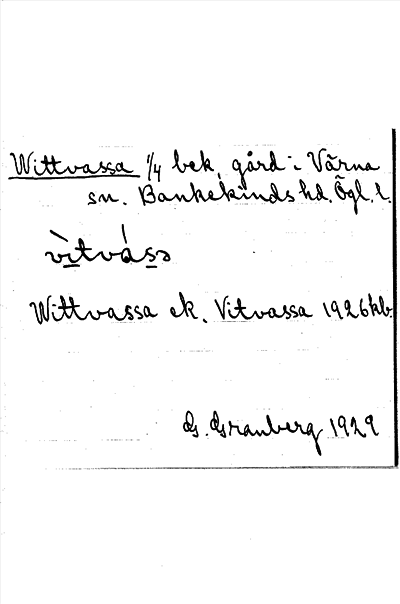 Wittvassa 1/4 bek. gård i Värna
sn. Bankekinds hd. Ögl. l.
vìtvásə
Wittvassa ek. Vitvassa 1926 kb.
G. Granberg 1929